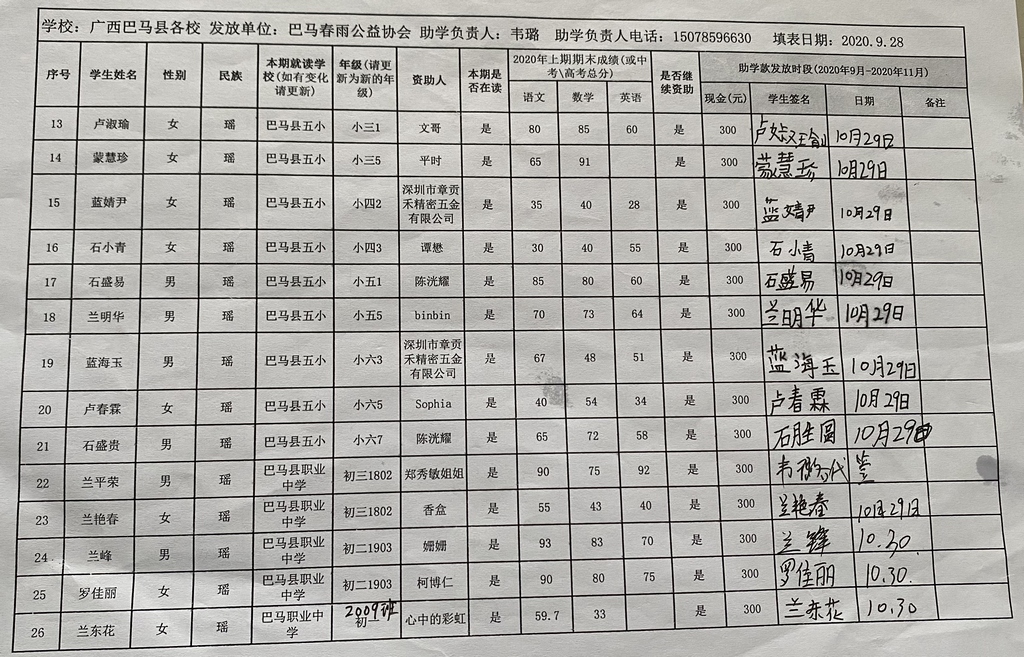 学校：广西巴马县各校 发放单位：巴马春雨公益协会 助学负责人：韦璐 助学负责人电话：15078596630 填表日期：2020.9.28
序号 学生姓名 性别 民族 本期就读学校(如有变化请更新) 年级(请更新为新的年级) 资助人 本期是否在读 2020年上期期末成绩(或中考\高考总分) 是否继续资助 助学款发放时段(2020年9月-2020年11月)
语文 数学 英语 现金(元) 学生签名 日期 备注
13 卢淑瑜 女 瑶 巴马县五小 小三1 文哥 是 80 85 60 是 300 10月29日
14 蒙慧珍 女 瑶 巴马县五小 小三5 平时 是 65 91 是 300 蒙慧珍 10月29日
15 蓝婧尹 女 瑶 巴马县五小 小四2 深圳市章贡禾精密五金有限公司 是 35 40 28 是 300 蓝婧尹 10月29日
16 石小青 女 瑶 巴马县五小 小四3 谭懋 是 30 40 55 是 300 石小青 10月29日
17 石盛易 男 瑶 巴马县五小 小五1 陈洸耀 是 85 80 60 是 300 石盛易 10月29日
18 兰明华 男 瑶 巴马县五小 小五5 binbin 是 70 73 64 是 300 兰明华 10月29日
19 蓝海玉 男 瑶 巴马县五小 小六3 深圳市章贡禾精密五金有限公司 是 67 48 51 是 300 蓝海玉 10月29日
20 卢春霖 女 瑶 巴马县五小 小六5 Sophia 是 40 54 34 是 300 卢春霖 10月29日
21 石盛贵 男 瑶 巴马县五小 小六7 陈洸耀 是 65 72 58 是 300 10月29日
22 兰平荣 男 瑶 巴马县职业中学 初三1802 郑秀敏姐姐 是 90 75 92 是 300
23 兰艳春 女 瑶 巴马县职业中学 初三1802 香盒 是 55 43 40 是 300 兰艳春 10月29日
24 兰峰 男 瑶 巴马县职业中学 初二1903 姗姗 是 93 83 70 是 300 兰锋 10.30.
25 罗佳丽 女 瑶 巴马县职业中学 初二1903 柯博仁 是 90 80 75 是 300 罗佳丽 10.30.
26 兰东花 女 瑶 巴马职业中学 初一 2009班 心中的彩虹 是 59.7 33 是 300 兰东花 10.30